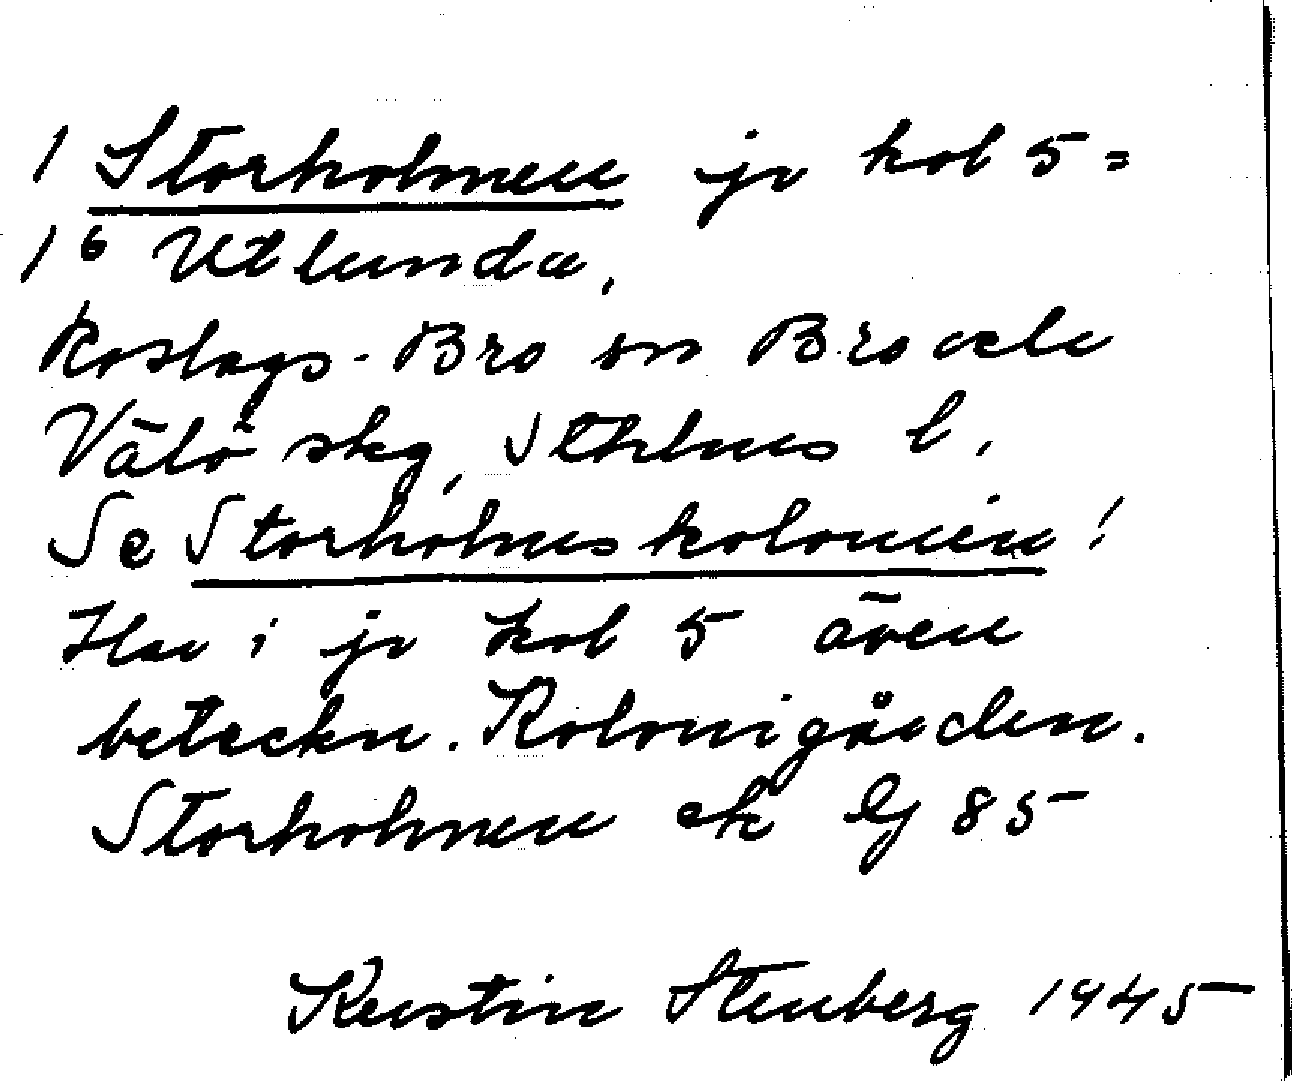 1 Storholmen jr kol 5 =
1⁶ Utlunda,
Roslags-Bro sn Bro o
Vätö skg, Sthlms l.
Se Storholmskolonien!
Har i jr kol 5 även
beteckn. Kolonigården.
Storholmen ek bl 85
Kerstin Stenberg 1945